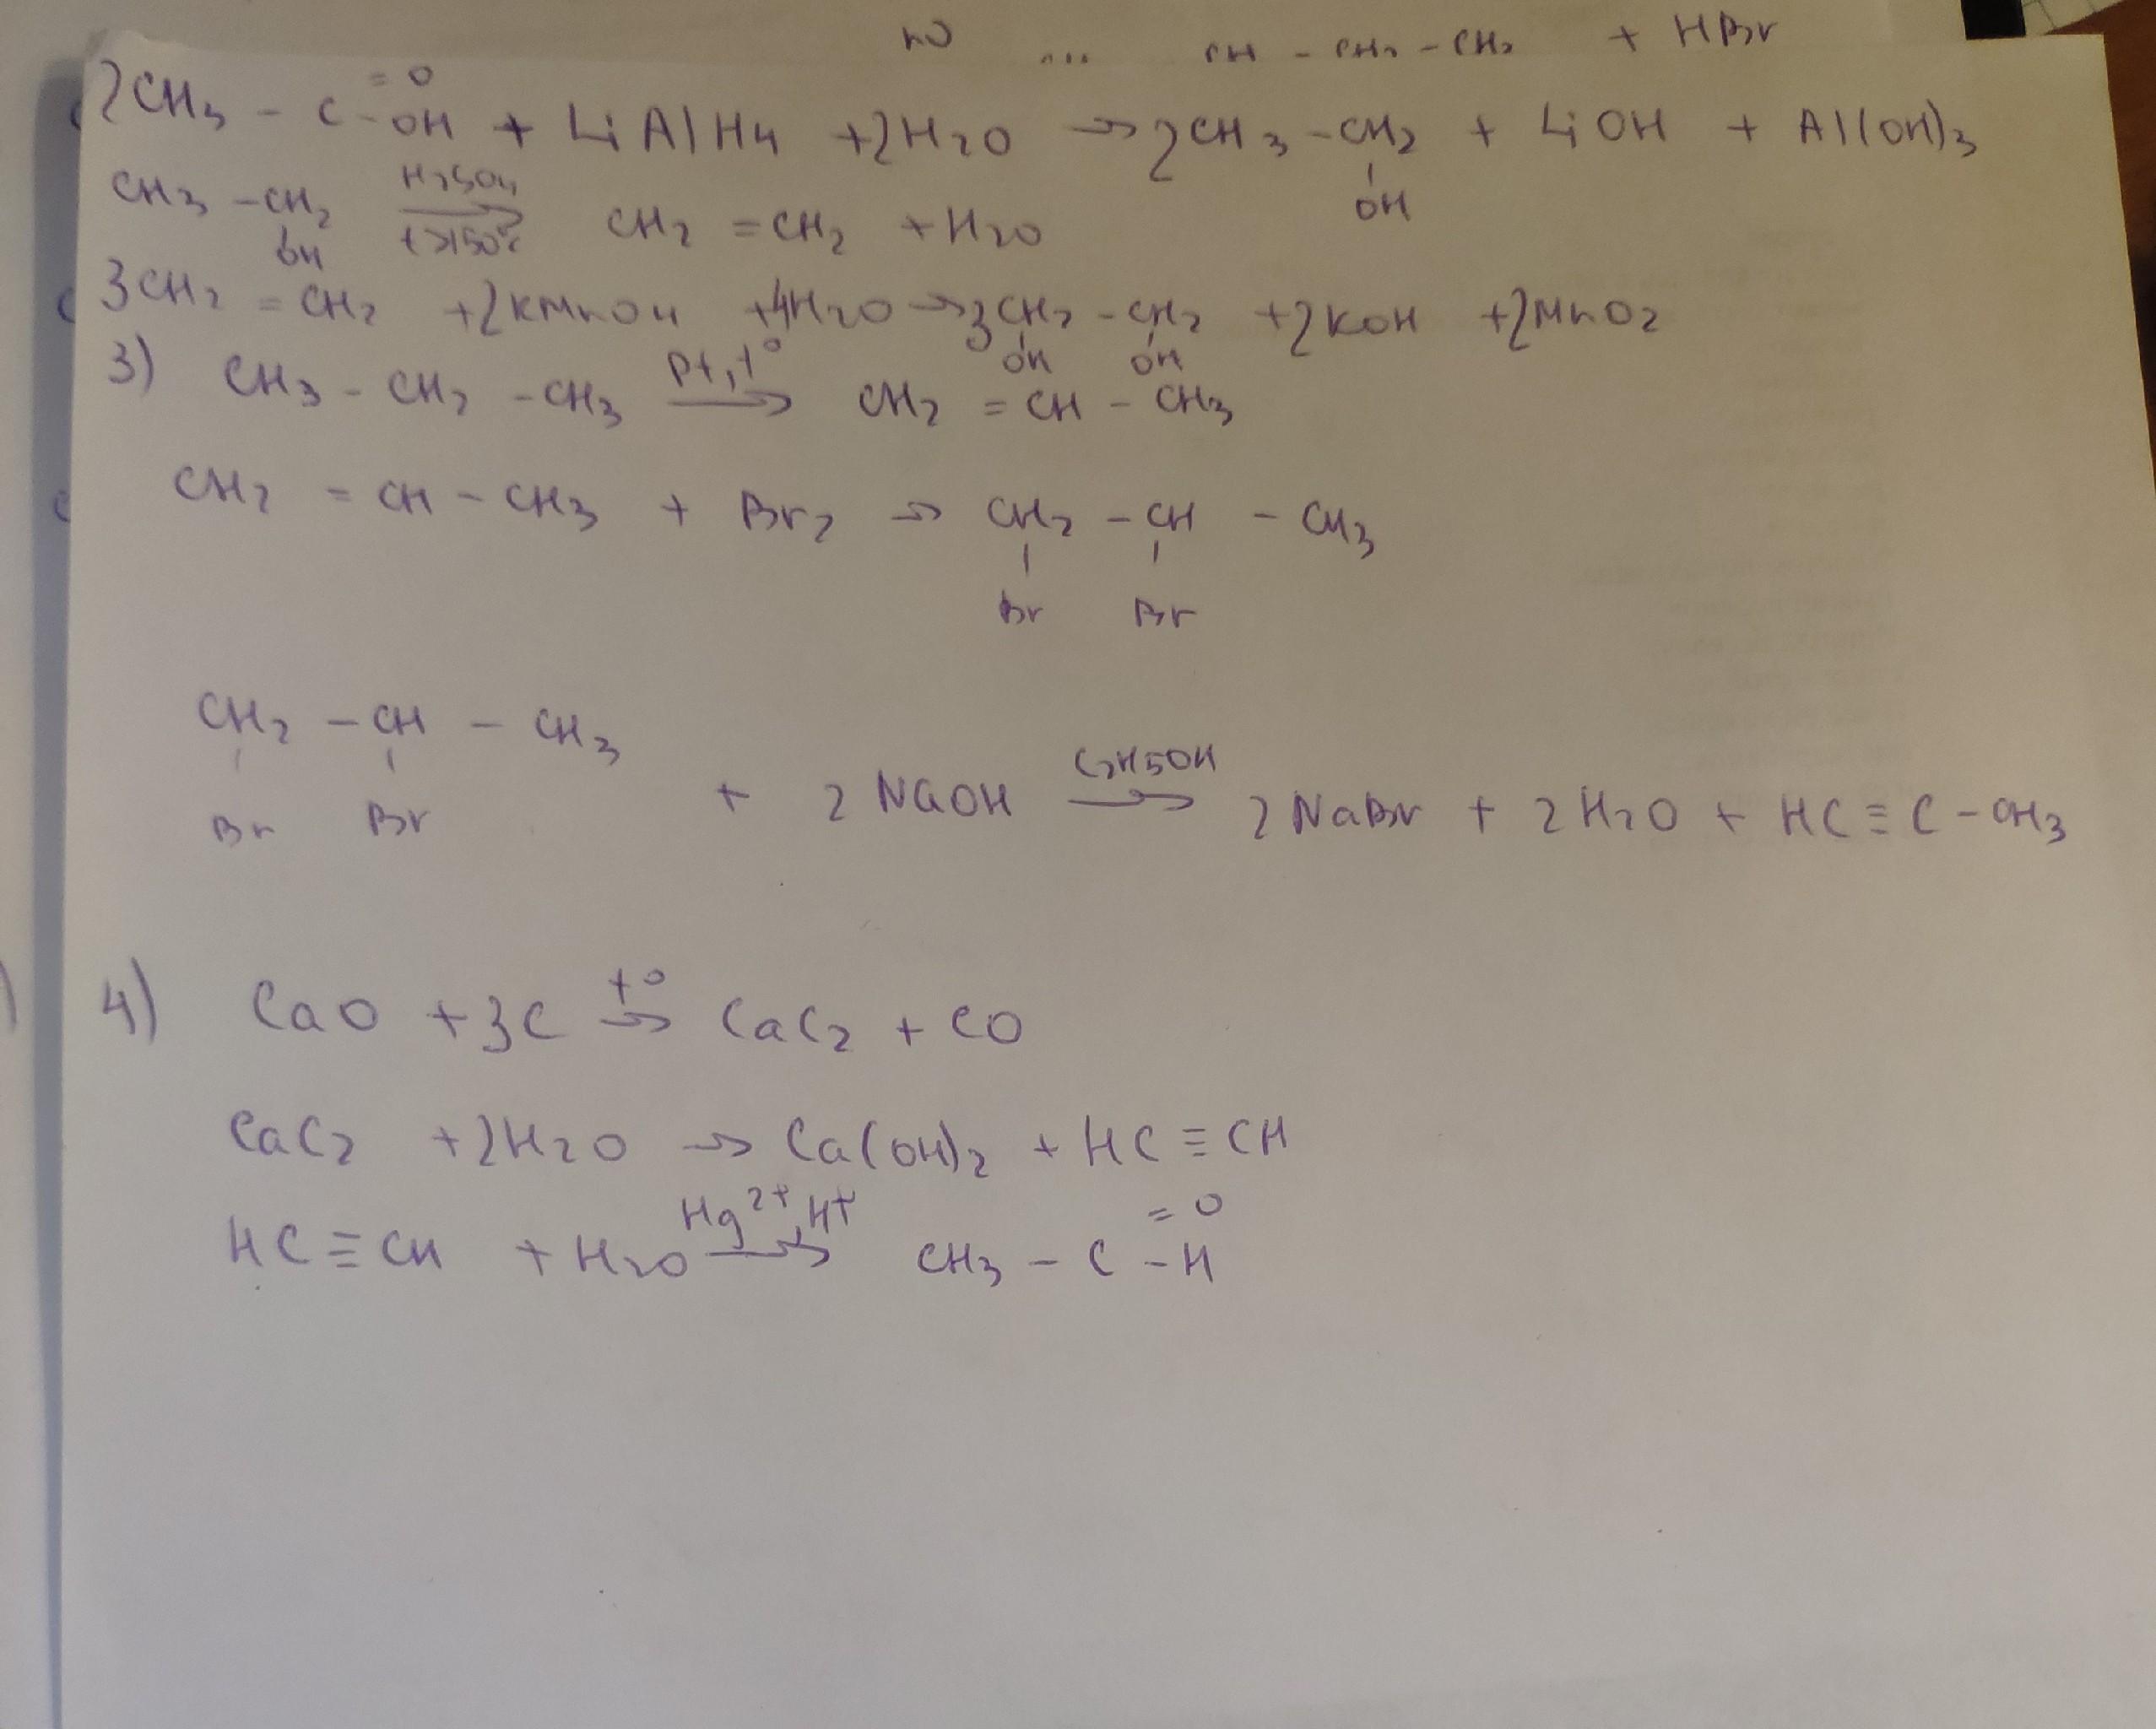 CH - CH2 - CH2 + HBr
= O
2CH3 - C - OH + LiAlH4 + 2H2O → 2CH3 - CH2 + LiOH + Al(OH)3
OH
CH3 - CH2 H2SO4 t>150°C → CH2 = CH2 + H2O
OH
3CH2 = CH2 + 2KMnO4 + 4H2O → 3CH2 - CH2 + 2KOH + 2MnO2
OH OH
3) CH3 - CH2 - CH3 Pt, t° → CH2 = CH - CH3
CH2 = CH - CH3 + Br2 → CH2 - CH - CH3
Br Br
CH2 - CH - CH3
Br Br + 2 NaOH C2H5OH → 2 NaBr + 2 H2O + HC ≡ C - CH3
4) CaO + 3C t° → CaC2 + CO
CaC2 + 2H2O → Ca(OH)2 + HC ≡ CH
= O
HC ≡ CH + H2O Hg2+, H+ → CH3 - C - H